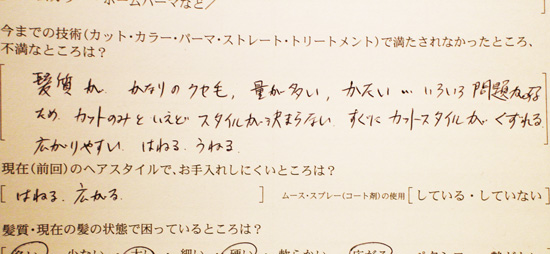 ホームパーマなど/
今までの技術(カット・カラー・パーマ・ストレート・トリートメント)で満たされなかったところ、
不満なところは?
髪質が、かなりのクセ毛、量が多い、かたい…いろいろ問題な
ため、カットのみといえどスタイルが決まらない。すぐにカットスタイルがくずれる。
広がりやすい。はねる。うねる。
現在(前回)のヘアスタイルで、お手入れしにくいところは?
[はねる。広がる。] ムース・スプレー(コート剤)の使用[している・していない]
髪質・現在の髪の状態で困っているところは?